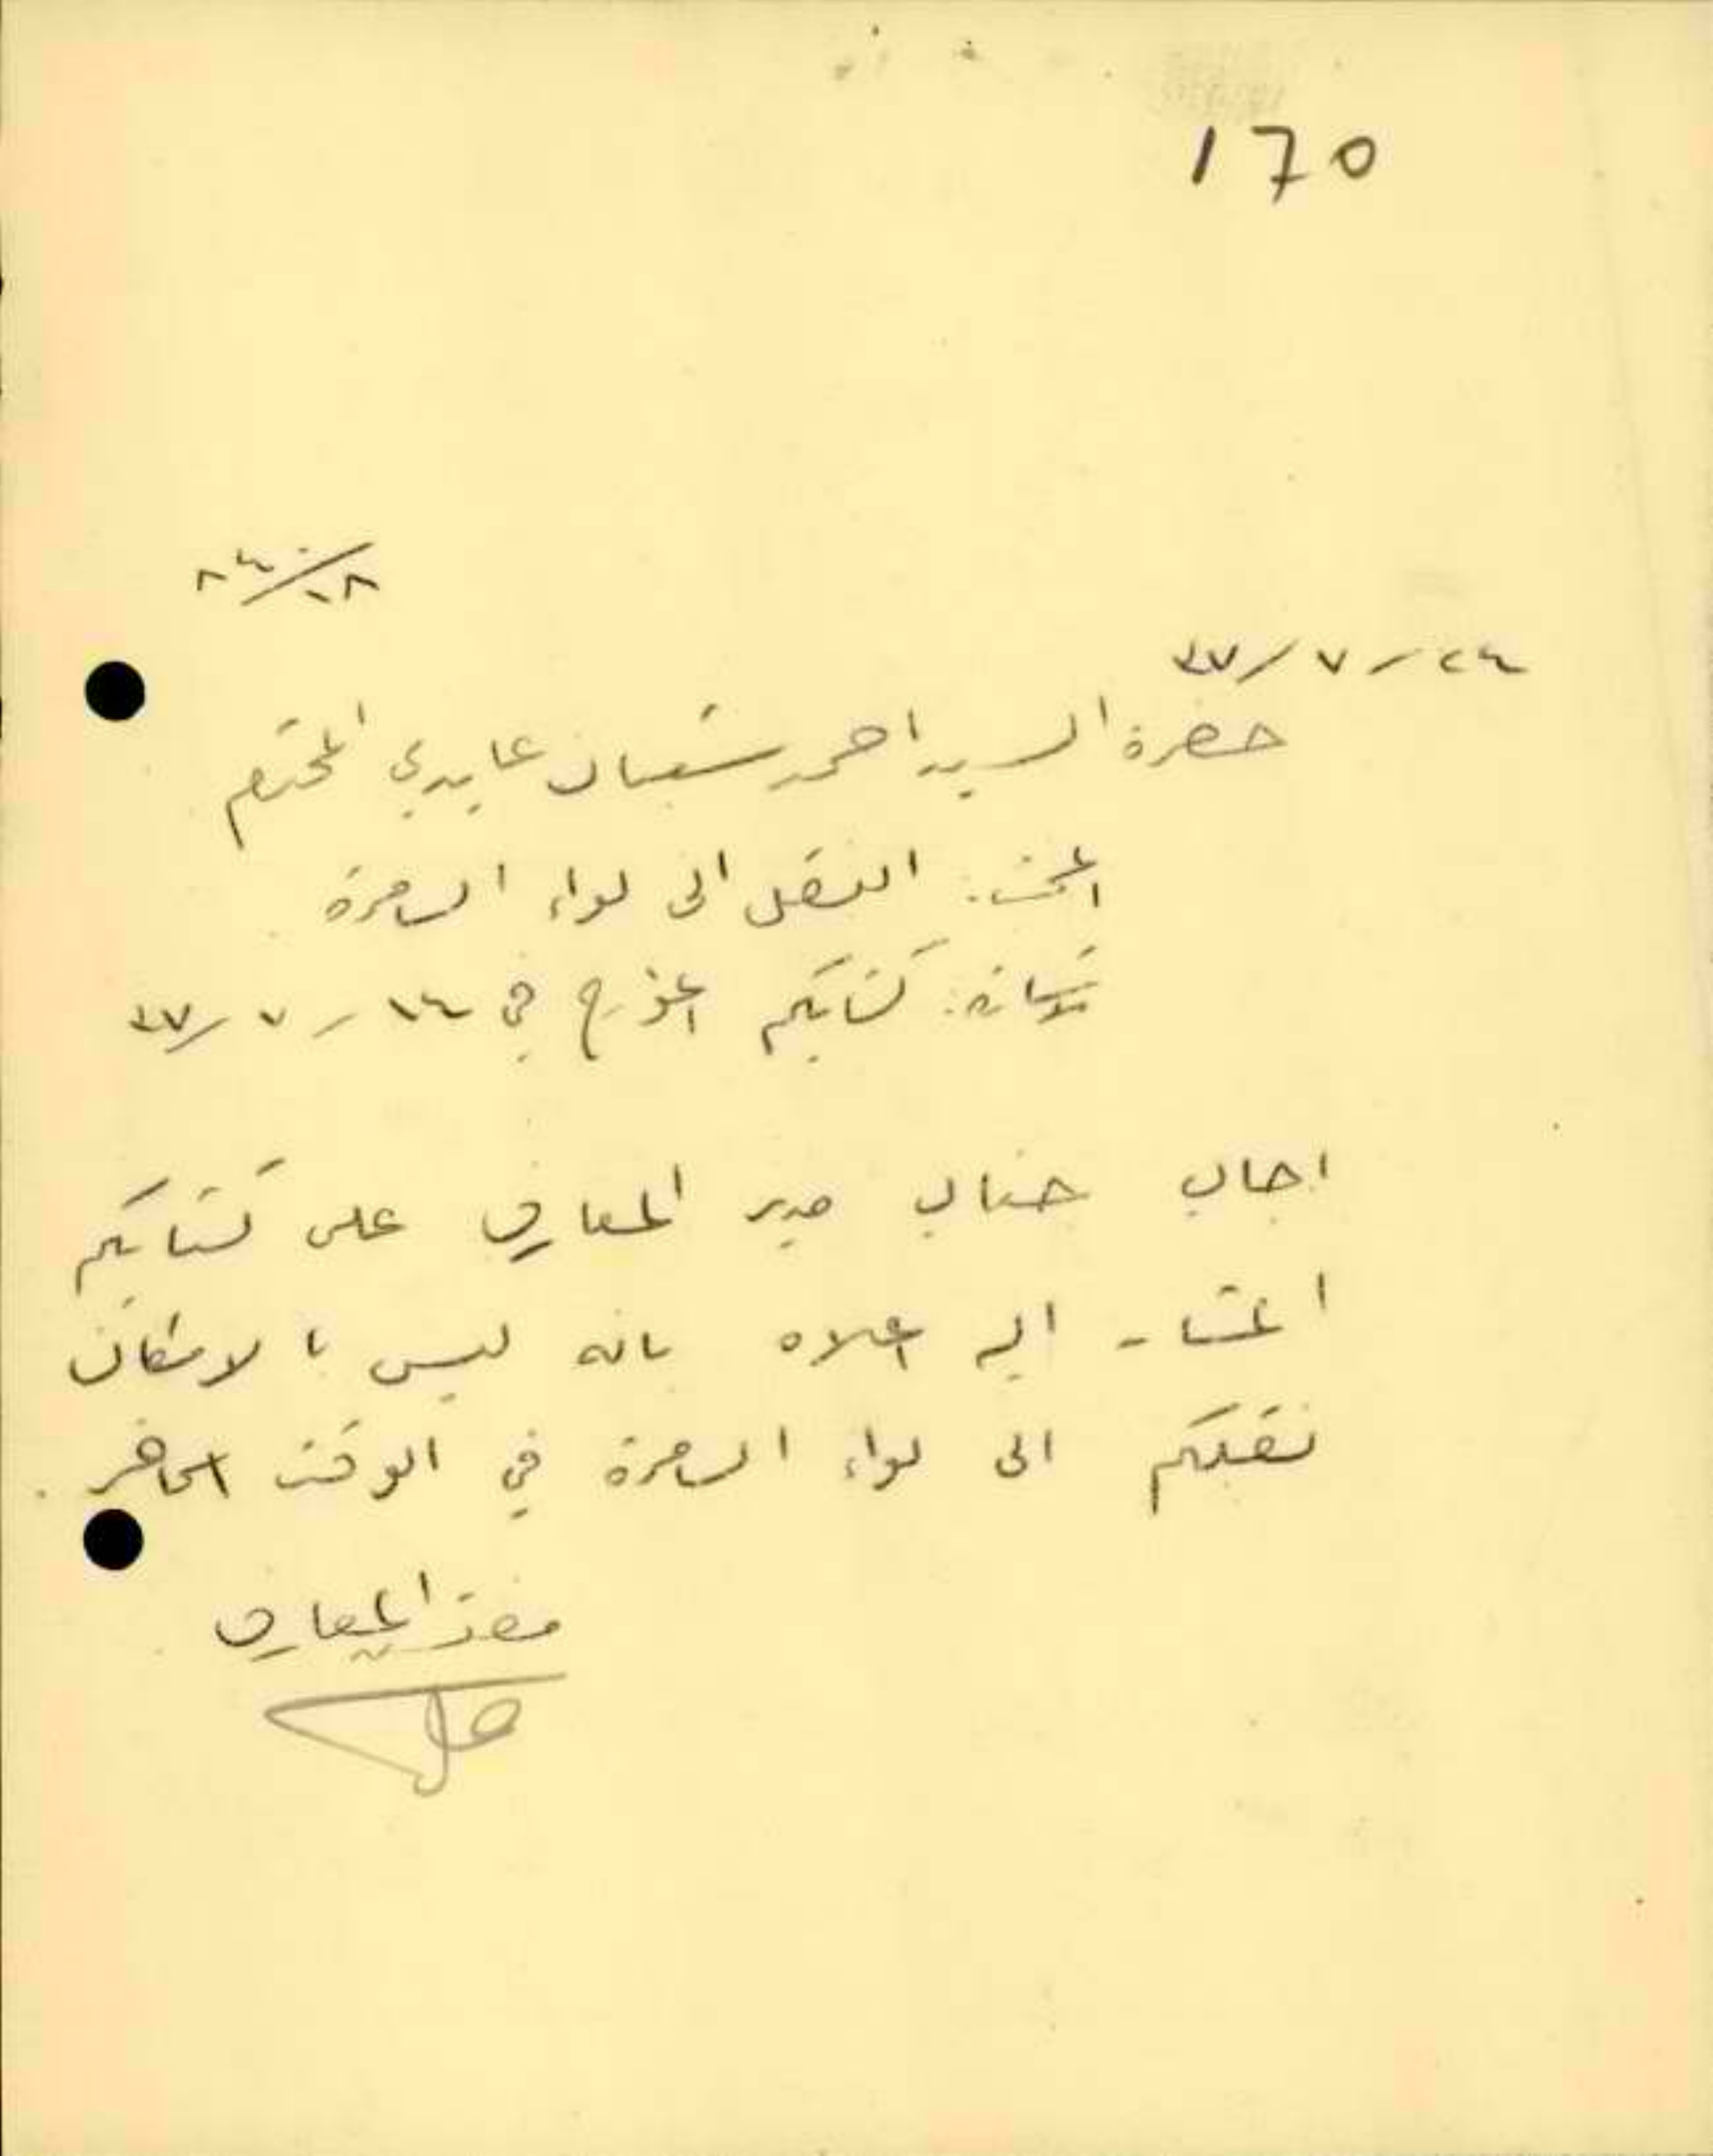 170
٢٤/٧/٣٧
حضرة السيد احمد شعبان عابدي المحترم
المبحث: النقل الى لواء السامرة
الاشارة: كتابكم المؤرخ في ١٤/٧/٣٧
اجاب جناب مدير المعارف على كتابكم
المشار اليه اعلاه بانه ليس بالامكان
نقلكم الى لواء السامرة في الوقت الحاضر.
مفتش المعارف